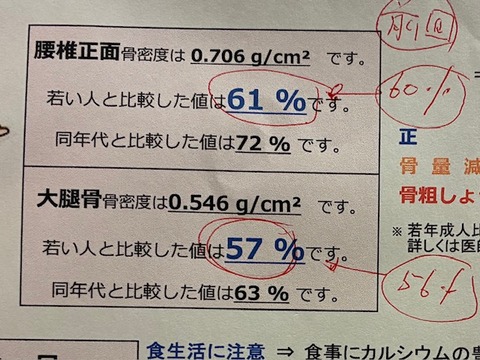 前回
腰椎正面骨密度は 0.706 g/cm² です。
若い人と比較した値は61 %です。
60%
同年代と比較した値は72 % です。
正
大腿骨骨密度は0.546 g/cm² です。
骨 量 減
骨粗しょ
若い人と比較した値は57 %です。
※ 若年成人比
詳しくは医師
同年代と比較した値は63 % です。
56%
食生活に注意 ⇒ 食事にカルシウムの豊